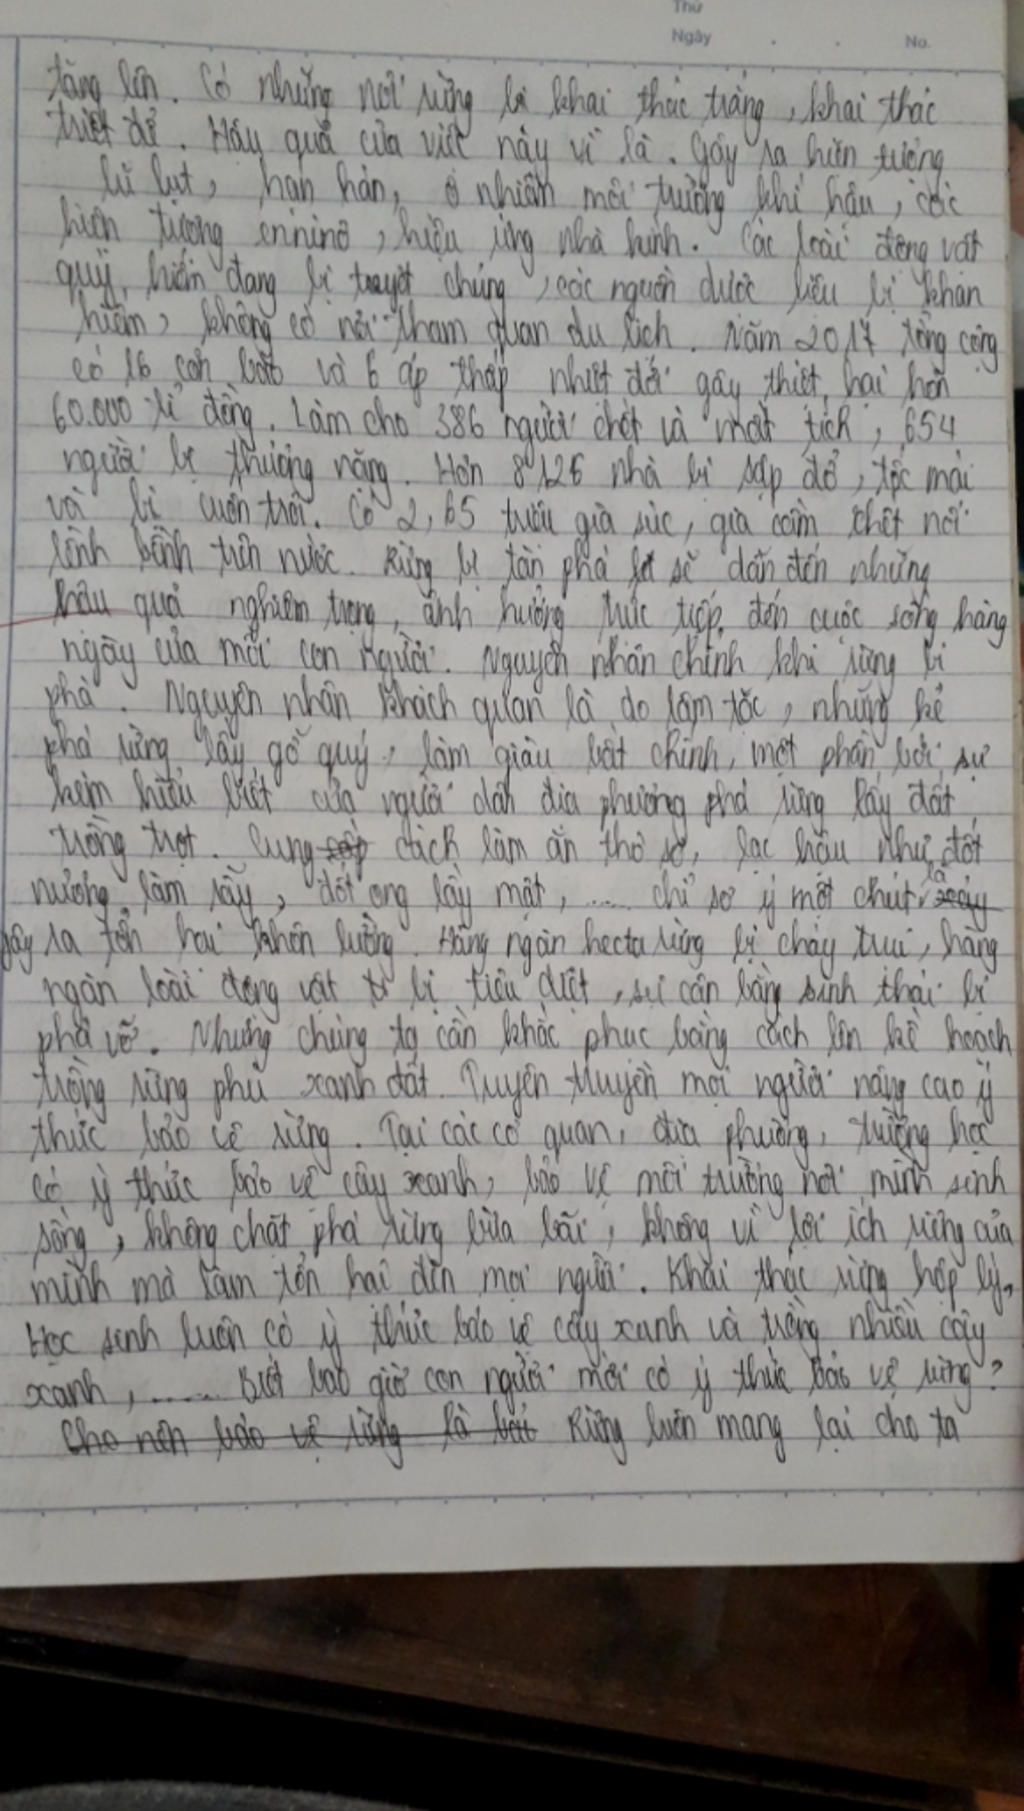 Thứ
Ngày . . No.
tăng lên. Có những nơi rừng bị khai thác trắng, khai thác
triệt để. Hậu quả của việc này vì là. Gây ra hiện tượng
lũ lụt, hạn hán, ô nhiễm môi trường khí hậu, các
hiện tượng ennino, hiệu ứng nhà kính. Các loài động vật
quý, hiếm đang bị tuyệt chủng, các nguồn dược liệu bị khan
hiếm, không có nơi tham quan du lịch. Năm 2017 tổng cộng
có 16 cơn bão và 6 áp thấp nhiệt đới gây thiệt hại hơn
60.000 tỉ đồng. Làm cho 386 người chết và mất tích, 654
người bị thương nặng. Hơn 8126 nhà bị sập đổ, tốc mái
và bị cuốn trôi. Có 2,65 triệu gia súc, gia cầm chết nổi
lềnh bềnh trên nước. Rừng bị tàn phá sẽ dẫn đến những
hậu quả nghiêm trọng, ảnh hưởng trực tiếp đến cuộc sống hàng
ngày của mỗi con người. Nguyên nhân chính khi rừng bị
phá. Nguyên nhân khách quan là do lâm tặc, những kẻ
phá rừng lấy gỗ quý, làm giàu bất chính, một phần bởi sự
kém hiểu biết của người dân địa phương phá rừng lấy đất
trồng trọt. Cung cấp cách làm ăn thô sơ, lạc hậu như đốt
nương làm rẫy, đốt ong lấy mật, ..... chỉ sơ ý một chút là
gây ra tổn hại khôn lường. Hàng ngàn hecta rừng bị cháy trụi, hàng
ngàn loài động vật bị tiêu diệt, sự cân bằng sinh thái bị
phá vỡ. Nhưng chúng ta cần khắc phục bằng cách lên kế hoạch
trồng rừng phủ xanh đất. Tuyên truyền mọi người nâng cao ý
thức bảo vệ rừng. Tại các cơ quan, địa phương, trường học
có ý thức bảo vệ cây xanh, bảo vệ môi trường nơi mình sinh
sống, không chặt phá rừng bừa bãi, không vì lợi ích riêng của
mình mà làm tổn hại đến mọi người. Khai thác rừng hợp lý,
Học sinh luôn có ý thức bảo vệ cây xanh và trồng nhiều cây
xanh, ...... Biết bao giờ con người mới có ý thức bảo vệ rừng?
Cho nên bảo vệ rừng là bởi Rừng luôn mang lại cho ta